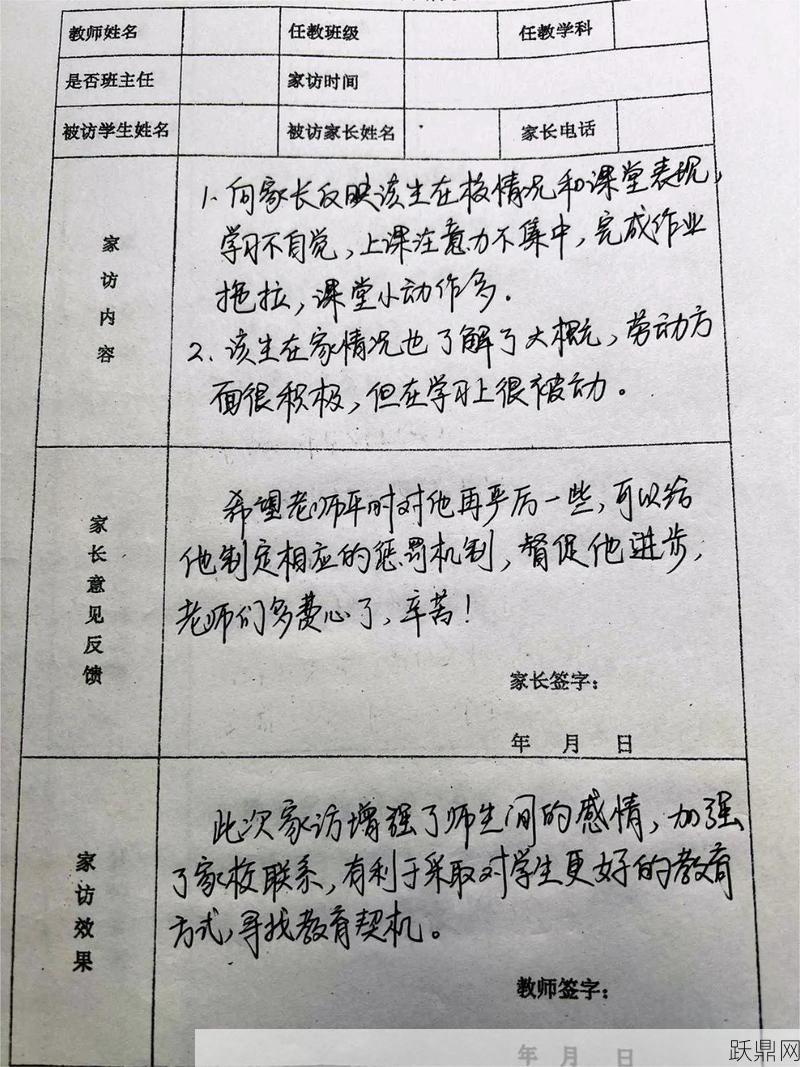 教师姓名 任教班级 任教学科
是否班主任 家访时间
被访学生姓名 被访家长姓名 家长电话
家访内容
1. 向家长反映该生在校情况和课堂表现，
学习不自觉，上课注意力不集中，完成作业
拖拉，课堂小动作多．
2. 该生在家情况也了解了大概，劳动方
面很积极，但在学习上很被动。
家长意见反馈
希望老师平时对他再严厉一些，可以给
他制定相应的惩罚机制，督促他进步，
老师们多费心了，辛苦！
家长签字：
年 月 日
家访效果
此次家访增强了师生间的感情，加强
了家校联系，有利于采取对学生更好的教育
方式，寻找教育契机。
教师签字：
年 月 日
跃鼎网